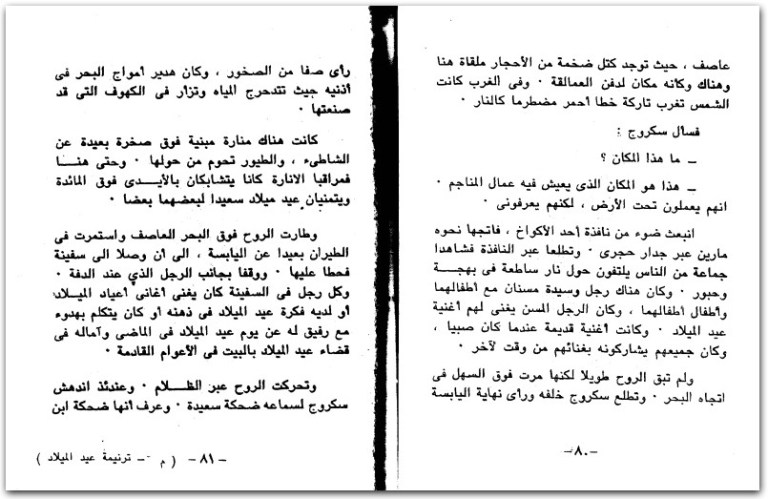 عاصف ، حيث توجد كتل ضخمة من الأحجار ملقاة هنا
وهناك وكأنه مكان لدفن العمالقة ٠ وفى الغرب كانت
الشمس تغرب تاركة خطا أحمر مضطرما كالنار ٠
فسأل سكروج :
ــ ما هذا المكان ؟
ــ هذا هو المكان الذى يعيش فيه عمال المناجم ٠
انهم يعملون تحت الأرض ، لكنهم يعرفونى ٠
انبعث ضوء من نافذة أحد الأكواخ ، فاتجها نحوه
مارين عبر جدار حجرى ٠ وتطلعا عبر النافذة فشاهدا
جماعة من الناس يلتفون حول نار ساطعة فى بهجــة
وحبور ٠ وكان هناك رجل وسيدة مسنان مع أطفالهما
وأطفال أطفالهما ، وكان الرجل المسن يغنى لهم أغنية
عيد الميلاد ٠ وكانت أغنية قديمة عندما كان صبيا ،
وكان جميعهم يشاركونه بغنائهم من وقت لآخر ٠
ولم تبق الروح طويلا لكنها مرت فوق السهل فى
اتجاه البحر ٠ وتطلع سكروج خلفه ورأى نهاية اليابسة
ــ ٨٠ ــ
رأى صفا من الصخور ، وكان هدير أمواج البحر فى
أذنيه حيث تتدحرج المياه وتزأر فى الكهوف التى قد
صنعتها ٠
كانت هناك منارة مبنية فوق صخرة بعيدة عن
الشاطىء ، والطيور تحوم من حولها ٠ وحتى هنــا
فمراقبا الانارة كانا يتشابكان بالأيــدى فوق المائدة
ويتمنيان عيد ميلاد سعيدا لبعضهما بعضا ٠
وطارت الروح فوق البحر العاصف واستمرت فى
الطيران بعيدا عن اليابسة ، الى أن وصلا الى سفينة
فحطا عليها ٠ ووقفا بجانب الرجل الذي عند الدفة ٠
وكل رجل فى السفينة كان يغنى أغانى أعياد الميلاد
أو لديه فكرة عيد الميلاد فى ذهنه أو كان يتكلم بهدوء
مع رفيق له عن يوم عيد الميلاد فى الماضى وآماله فى
قضاء عيد الميلاد بالبيت فى الأعوام القادمة ٠
وتحركت الروح عبر الظــلام ٠ وعندئذ اندهش
سكروج لسماعه ضحكة سعيدة ٠ وعرف أنها ضحكة ابن
ــ ٨١ ــ ( م ــ ترنيمة عيد الميلاد )